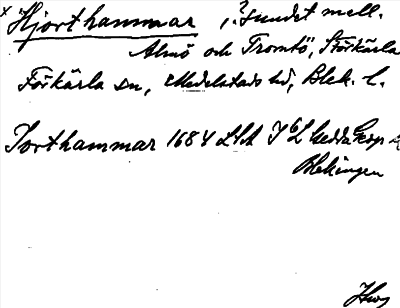 x Hjorthammar, ? sundet mell.
Almö och Tromtö, Förkärla
Förkärla sn, Medelstads hd, Blek. l.
Jorthammar 1684 LSA
Blekingen